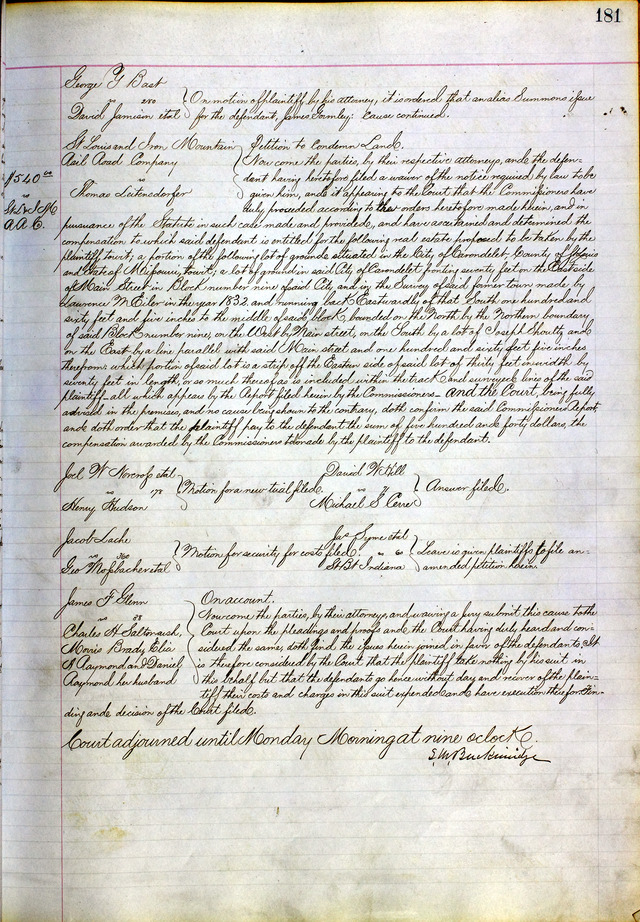 181
George Y Bast
vs
David Jamison etal
On motion of plaintiff, by his attorney, it is ordered that an alias Summons issue
for the defendant, James Gormley: cause continued.
St Louis and Iron Mountain
Rail Road Company
vs
Thomas Leitensdorfer
$540 00
Petition to Condemn Land.
Now come the parties, by their respective attorneys, and the defen-
dant having heretofore filed a waiver of the notice required by law to be
given him, and it appearing to the Court that the Commissioners have
duly proceeded according to the orders heretofore made herein, and in
pursuance of the Statute in such case made and provided, and have ascertained and determined the
compensation to which said defendant is entitled for the following real estate proposed to be taken by the
plaintiff, towit; a portion of the following lot of ground situated in the City of Carondelet, County of St Louis
and State of Missouri, towit; a lot of ground in said City of Carondelet fronting seventy feet on the East side
of Main Street in Block number nine of said City, and in the Survey of said former town made by
Lawrence Eiler in the year 1832, and running back Eastwardly of that South one hundred and
sixty feet and five inches to the middle of said block, bounded on the North, by the Northern boundary
of said Block number nine, on the West by Main street, on the South by a lot of Joseph and
on the East by a line parallel with said Main street and one hundred and sixty feet five inches
therefrom: which portion of said lot is a strip off the Eastern side of said lot of thirty feet in width by
seventy feet in length, or so much thereof as is included within the track and surveyed lines of the said
plaintiff - all which appears by the Report filed herein by the Commissioners - And the Court, being fully
advised in the premises, and no cause being shown to the contrary, doth confirm the said Commissioners Report
and doth order that the plaintiff pay to the defendant the sum of five hundred and forty dollars, the
compensation awarded by the Commissioners to be made by the plaintiff to the defendant.
Joel W Norcross etal
vs
Henry Hudson
Motion for a new trial filed.
David W Hill
vs
Michael S Cerre
Answer filed.
Jacob
vs
Geo etal
Motion for security for costs filed.
Jas Lyme etal
vs
St Bt Indiana
Leave is given plaintiffs to file an-
amended petition herein.
James F Glenn
vs
Charles H Saltonraish,
Movie Brady, Elia
S Raymond and Daniel
Raymond her husband
On account.
Now come the parties, by their attorneys, and waiving a jury submit this cause to the
Court upon the pleadings and proofs and the Court having duly heard and con-
sidered the same, doth find the issues herein joined in favor of the defendants, It
is therefore considered by the Court that the plaintiff take nothing by his suit in
this behalf but that the defendants go hence without day and recover of the plain-
tiff their costs and charges in this suit expended and have execution therefor. Fin-
ding and decision of the Court filed.
Court adjourned until Monday Morning at nine oclock.
S. M. Breckinridge